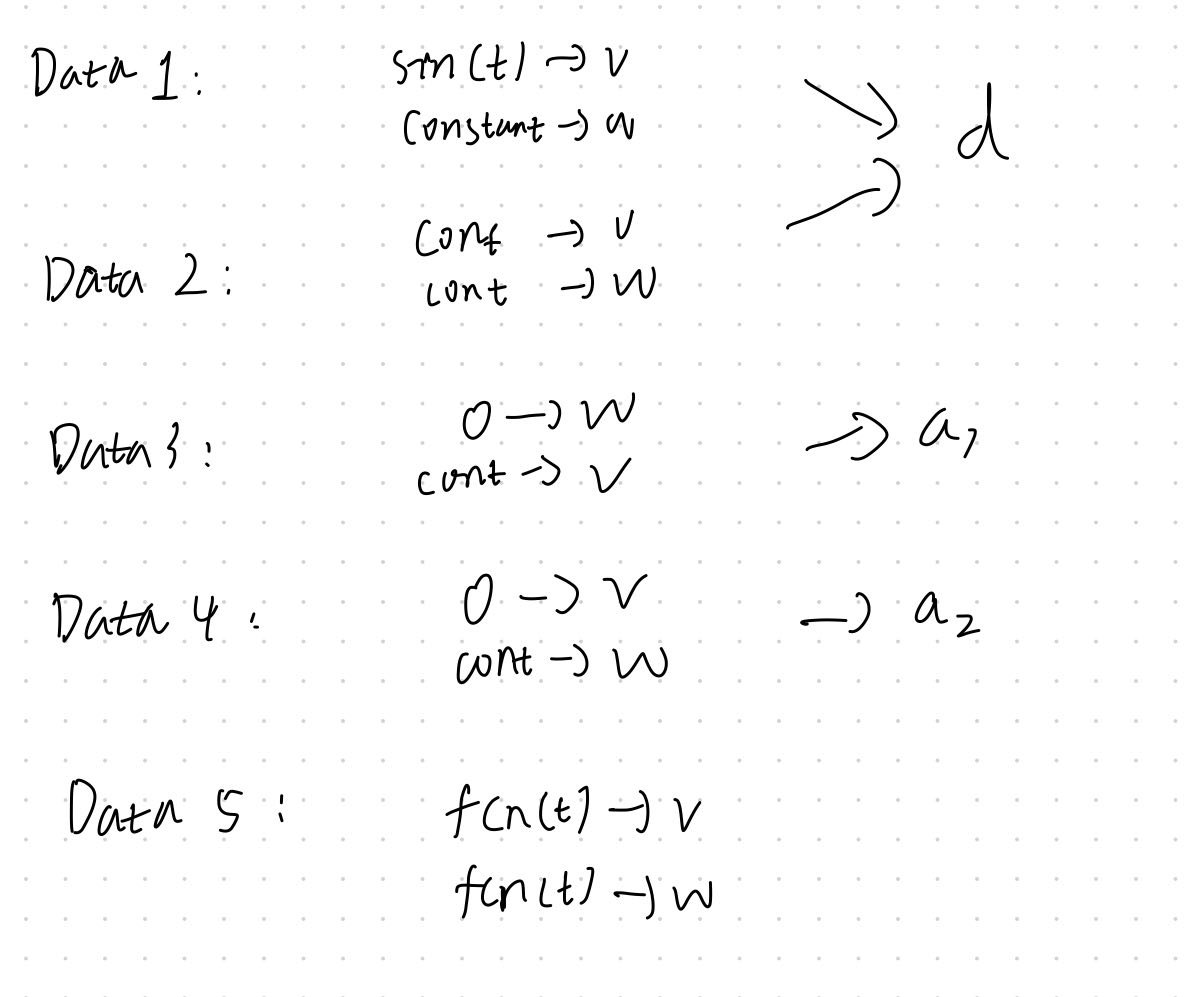 Data 1:
sin(t) → v
constant → a
→ → d
Data 2:
cont → v
cont → w
Data 3:
0 → w
cont → v
→ a₁
Data 4:
0 → v
cont → w
→ a₂
Data 5:
fcn(t) → v
fcn(t) → w